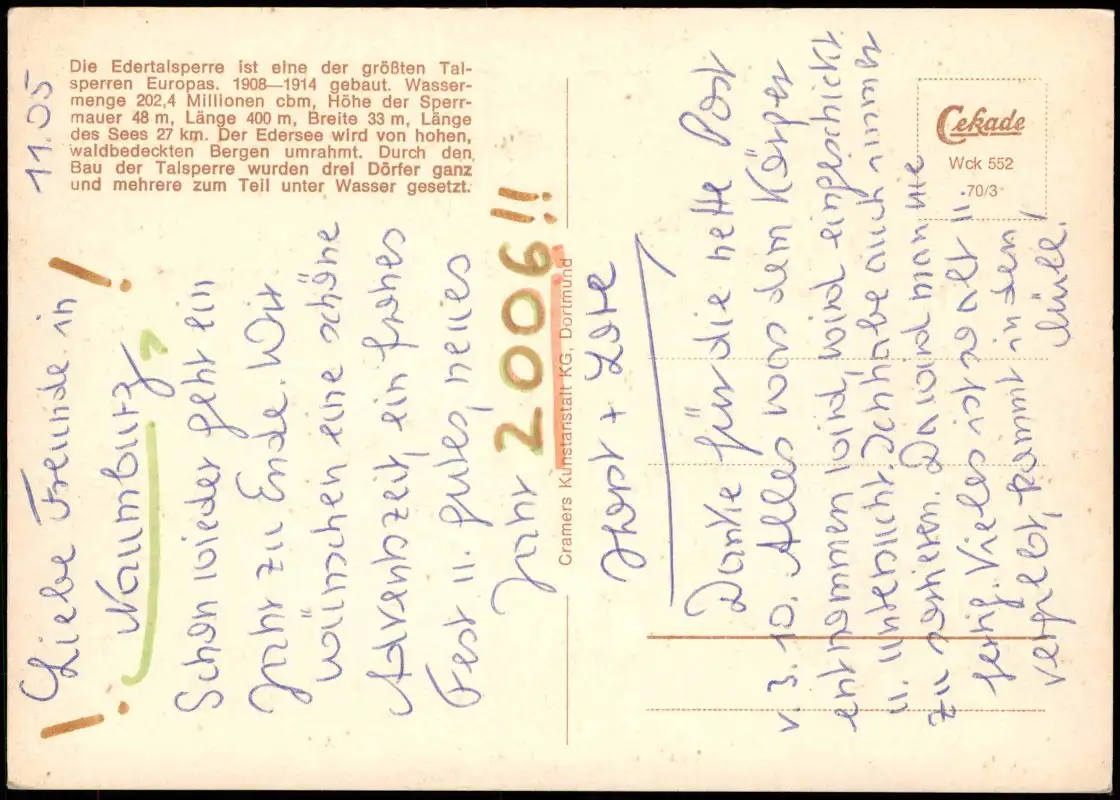 Die Edertalsperre ist eine der größten Tal-
sperren Europas. 1908—1914 gebaut. Wasser-
menge 202,4 Millionen cbm, Höhe der Sperr-
mauer 48 m, Länge 400 m, Breite 33 m, Länge
des Sees 27 km. Der Edersee wird von hohen,
waldbedeckten Bergen umrahmt. Durch den
Bau der Talsperre wurden drei Dörfer ganz
und mehrere zum Teil unter Wasser gesetzt.
Cekade
Wck 552
70/3
Cramers Kunstanstalt KG, Dortmund
11.05
! Liebe Freunde in !
Naumburg,
Schon wieder geht ein
Jahr zu Ende. Wir
wünschen eine schöne
Adventszeit, ein frohes
Fest u. gutes, neues
Jahr 2006!!
Horst + Lore
Danke für die nette Post
v. 3.10. Alles was dem Körper
entnommen wird, wird eingeschickt
u. untersucht. Ich habe auch nimmer
zu Da wird man nie
fertig. Vieles ist so alt u.
vergilbt, kommt in den
Müll!